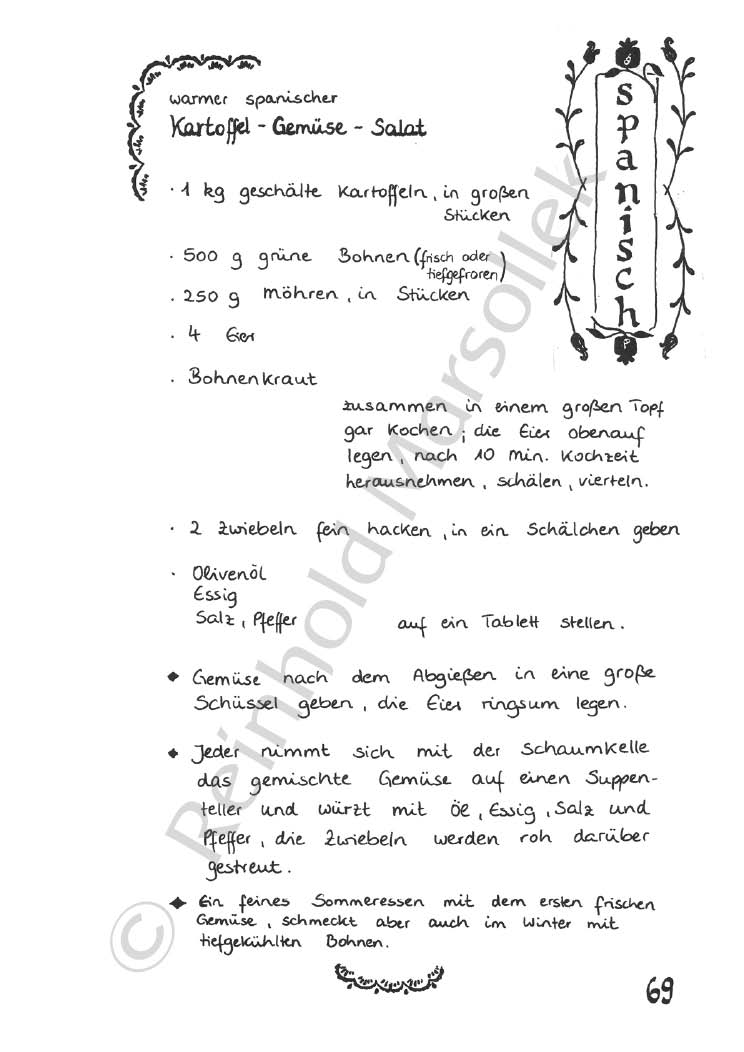 warmer spanischer
Kartoffel - Gemüse - Salat
spanisch
· 1 kg geschälte Kartoffeln, in großen
Stücken
· 500 g grüne Bohnen (frisch oder
tiefgefroren)
· 250 g Möhren, in Stücken
· 4 Eier
· Bohnenkraut
zusammen in einem großen Topf
gar kochen; die Eier obenauf
legen, nach 10 Min. Kochzeit
herausnehmen, schälen, vierteln.
· 2 Zwiebeln fein hacken, in ein Schälchen geben
· Olivenöl
Essig
Salz, Pfeffer auf ein Tablett stellen.
◆ Gemüse nach dem Abgießen in eine große
Schüssel geben, die Eier ringsum legen.
◆ Jeder nimmt sich mit der Schaumkelle
das gemischte Gemüse auf einen Suppen-
teller und würzt mit Öl, Essig, Salz und
Pfeffer, die Zwiebeln werden roh darüber
gestreut.
◆ Ein feines Sommeressen mit dem ersten frischen
Gemüse, schmeckt aber auch im Winter mit
tiefgekühlten Bohnen.
69
© Reinhold Marsollek